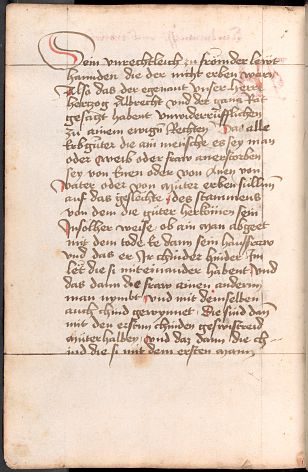 Sein vnrechtleich zu frömder lewt
hannden die der nicht erben warn
Also das der egenant vnser herr
herzog Albrecht vnd der ganz Rat
gesatzt habent vnwiderruflichen
zu ainem ewigen Rechten Das alle
Erbgüter die an mensche es sey man
oder weib oder fraw anerstorben
sey von Enen oder von Anen von
vater oder von Müter erben süllen
auf das geslechte des stammens
von dem die güter herkömen sein
In solher weise ob ain man abgeet
mit dem tode Er dann sein hausfraw
vnd das er Ir chinder hinder Im
let die si miteinander habent vnd
das dann die fraw ainen anderen
man nymbt vnd mit demselben
auch chind gewynnet Die sind dan
mit den ersten chinden geswistreid
müterhalben vnd daz dann die ch
ind die si mit dem ersten mann